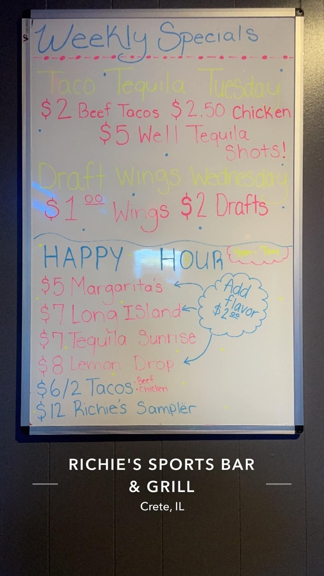 Weekly Specials
Taco Tequila Tuesday
$2 Beef Tacos $2.50 Chicken
$5 Well Tequila
Shots!
Draft Wings Wednesday
$1.00 Wings $2 Drafts
HAPPY HOUR
$5 Margarita's
Add
flavor
$2.00
$7 Long Island
$7 Tequila Sunrise
$8 Lemon Drop
$6/2 Tacos Beef
Chicken
$12 Richie's Sampler
RICHIE'S SPORTS BAR
& GRILL
Crete, IL